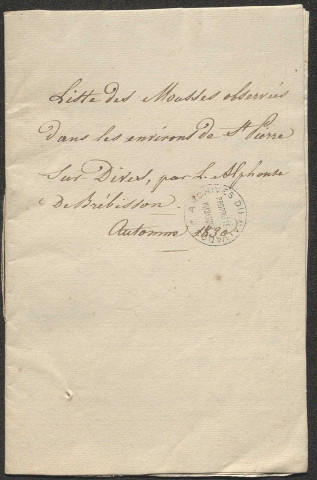 Liste des Mousses observées
dans les environs de St Pierre
Sur Dives, par L. Alphonse
De Brébisson.
Automne 1830
ARCHIVES DU CALVADOS